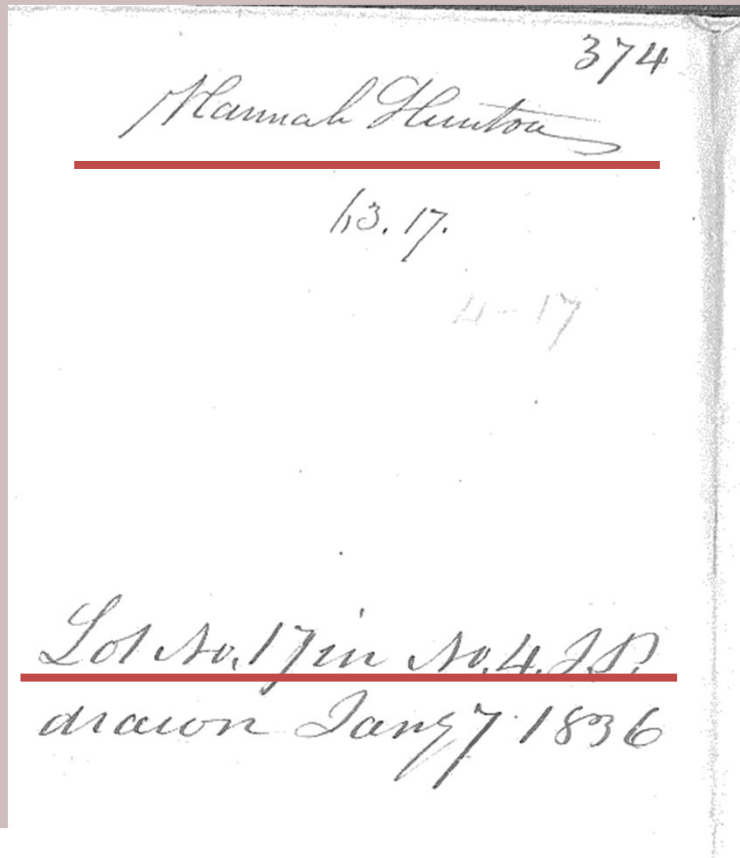 374
Hannah Hunton
h3. 17.
4-17
Lot No. 17 in No. 4. I. P.
drawn Jany 7 1836